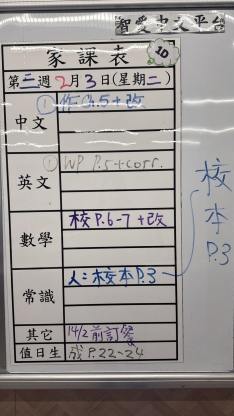 智愛中文平台
家課表
1D
第三週2月3日(星期二)
中文
① 作ch.5+改
英文
① WP P.5+corr.
數學
校P.6-7+改
常識
人:校本P.3
校本P.3
其它
14/2前訂餐
值日生
成P.22-24